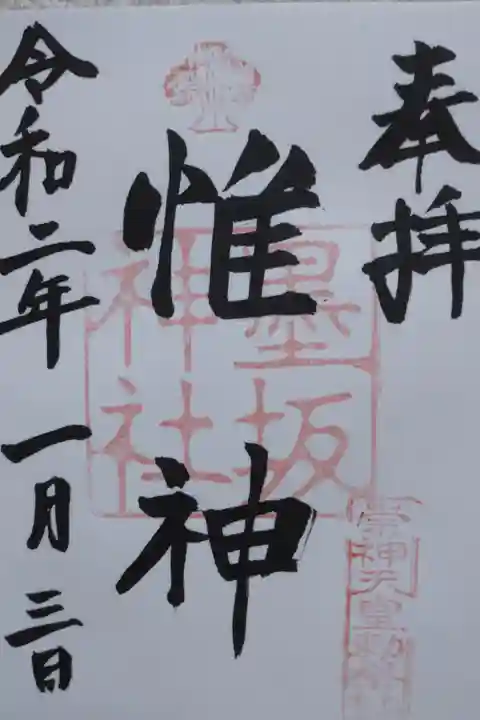 奉拝
惟神
墨坂
神社
崇神天皇勅
令和二年 一月 三日